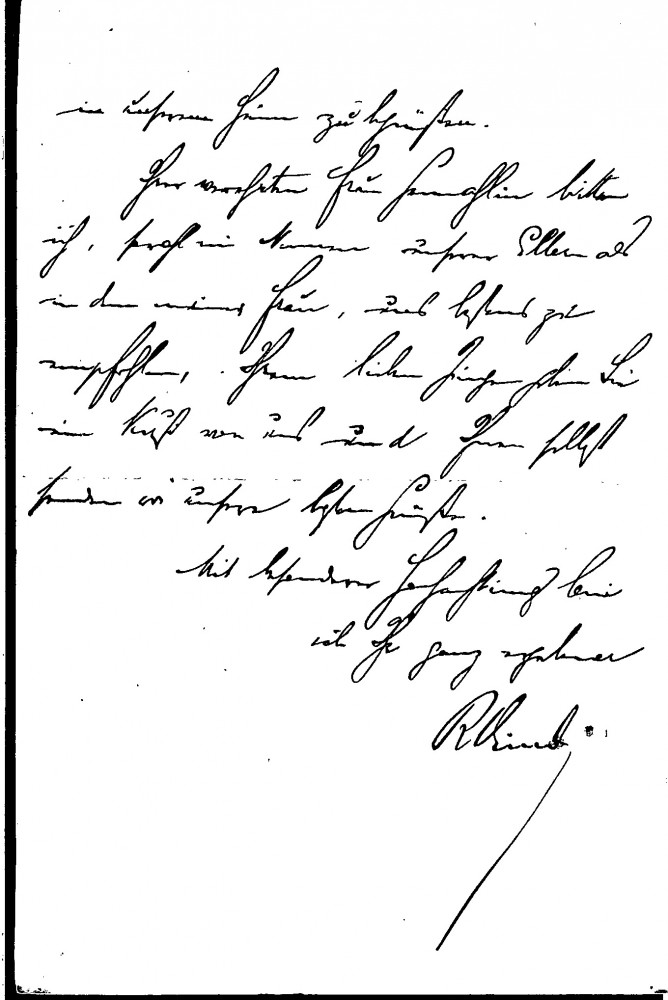 in unserem Heim zu begrüßen.
Ihrer verehrten Frau Gemahlin bitten
ich, sowohl im Namen unserer Eltern als
in dem meiner Frau, uns bestens zu
empfehlen, Ihrem lieben Jungen geben Sie
ein Kuß von uns und Ihnen selbst
senden wir unsere besten Grüße.
Mit besonderer Hochachtung bin
ich Ihr ganz ergebener